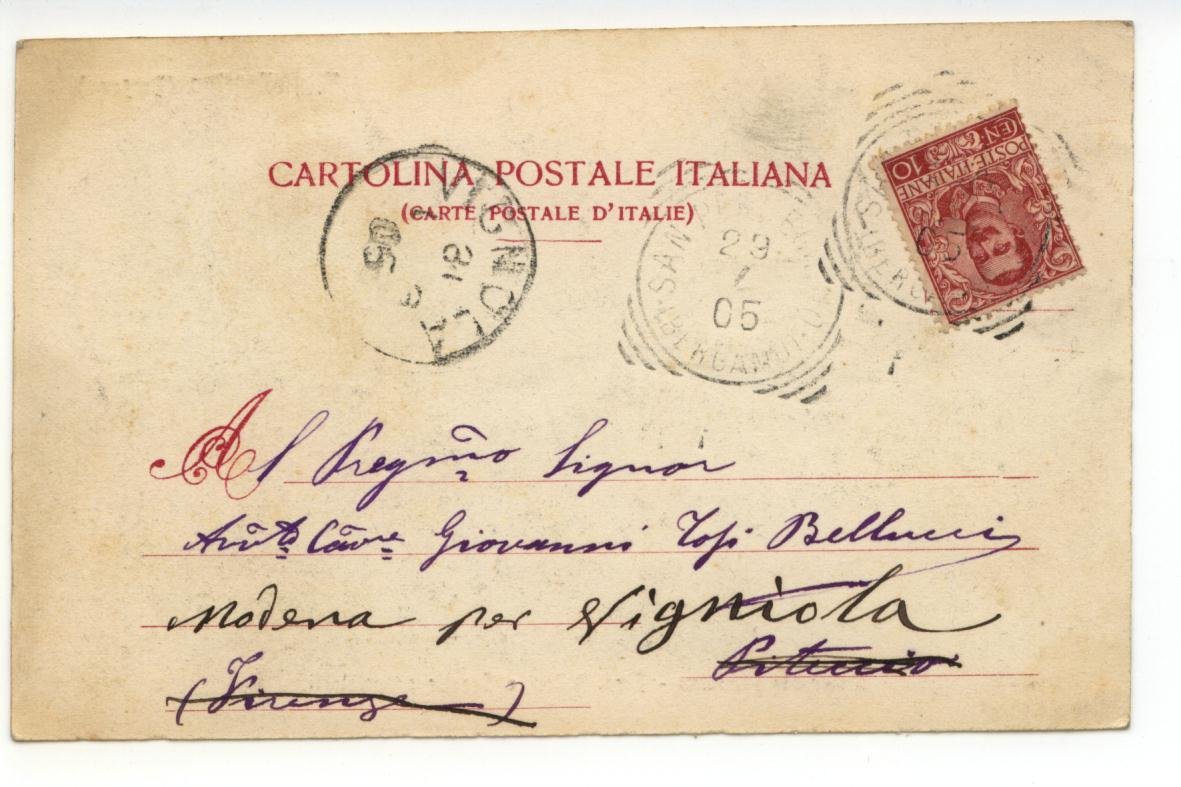 CARTOLINA POSTALE ITALIANA
(CARTE POSTALE D'ITALIE)
VIGNOLA
05
SAN
29
7
05
(BERGAMO)
POSTE·ITALIANE
10
Al Pregmo Signor
Avvto Cavre Giovanni Tosi Bellucci
Modena per Vigniola
(Firenze)